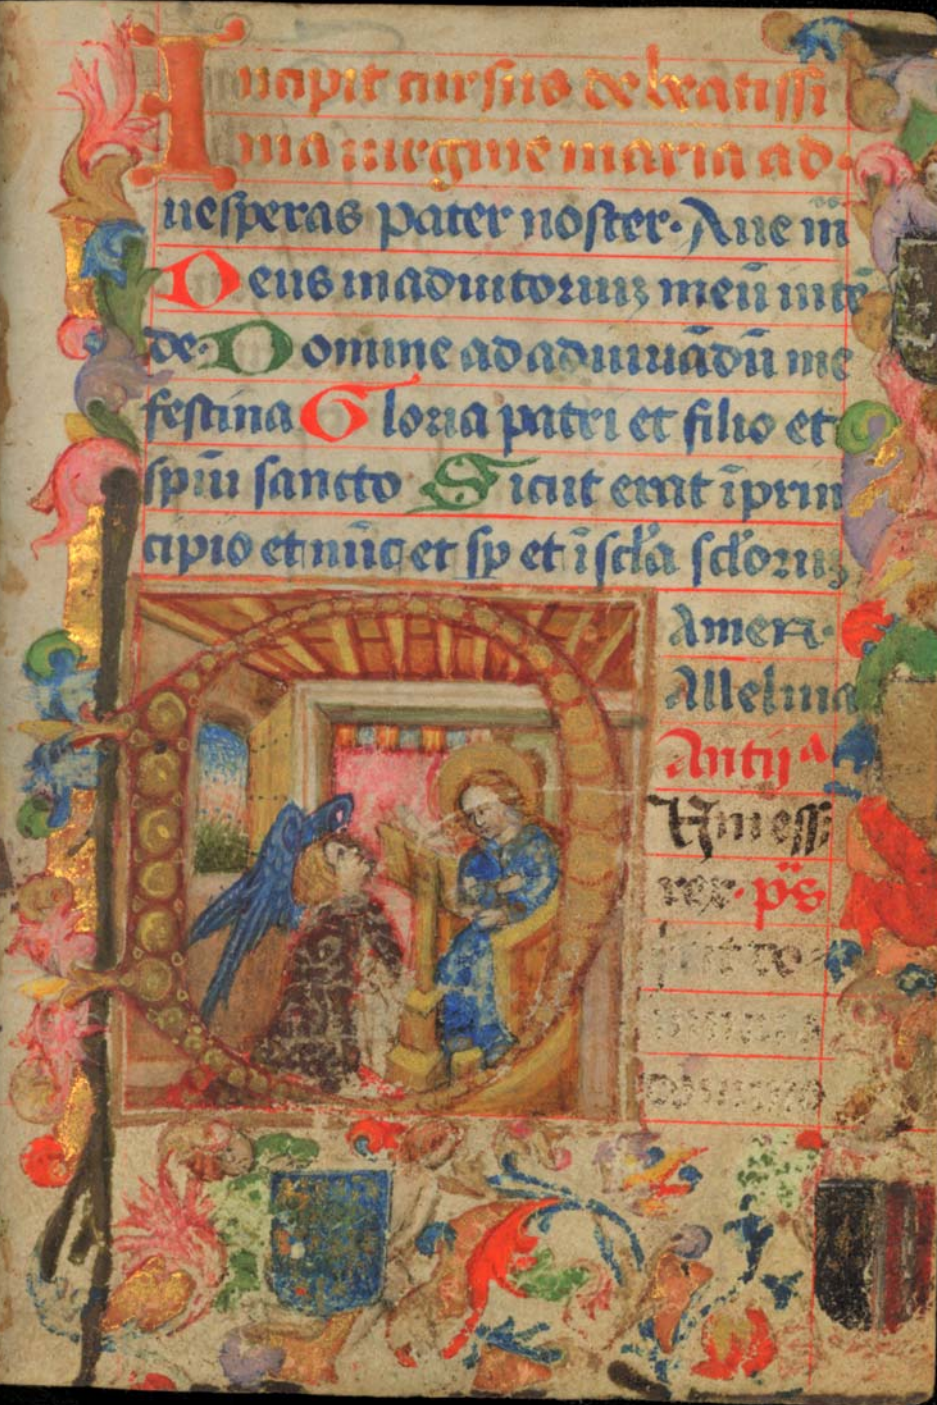 Incipit cursus de beatissi
ma uirgine maria ad
uesperas pater noster. Aue m̄
Deus in adiutoriuʒ meū intē
de. Domine ad adiuuādū me
festina Gloria patri et filio et
spiū sancto Sicut erat ī prin
cipio et nūc et sp et ī scl̄a scl̄oruʒ
Amen.
Alleluia
Antiᵃ
rex. ps